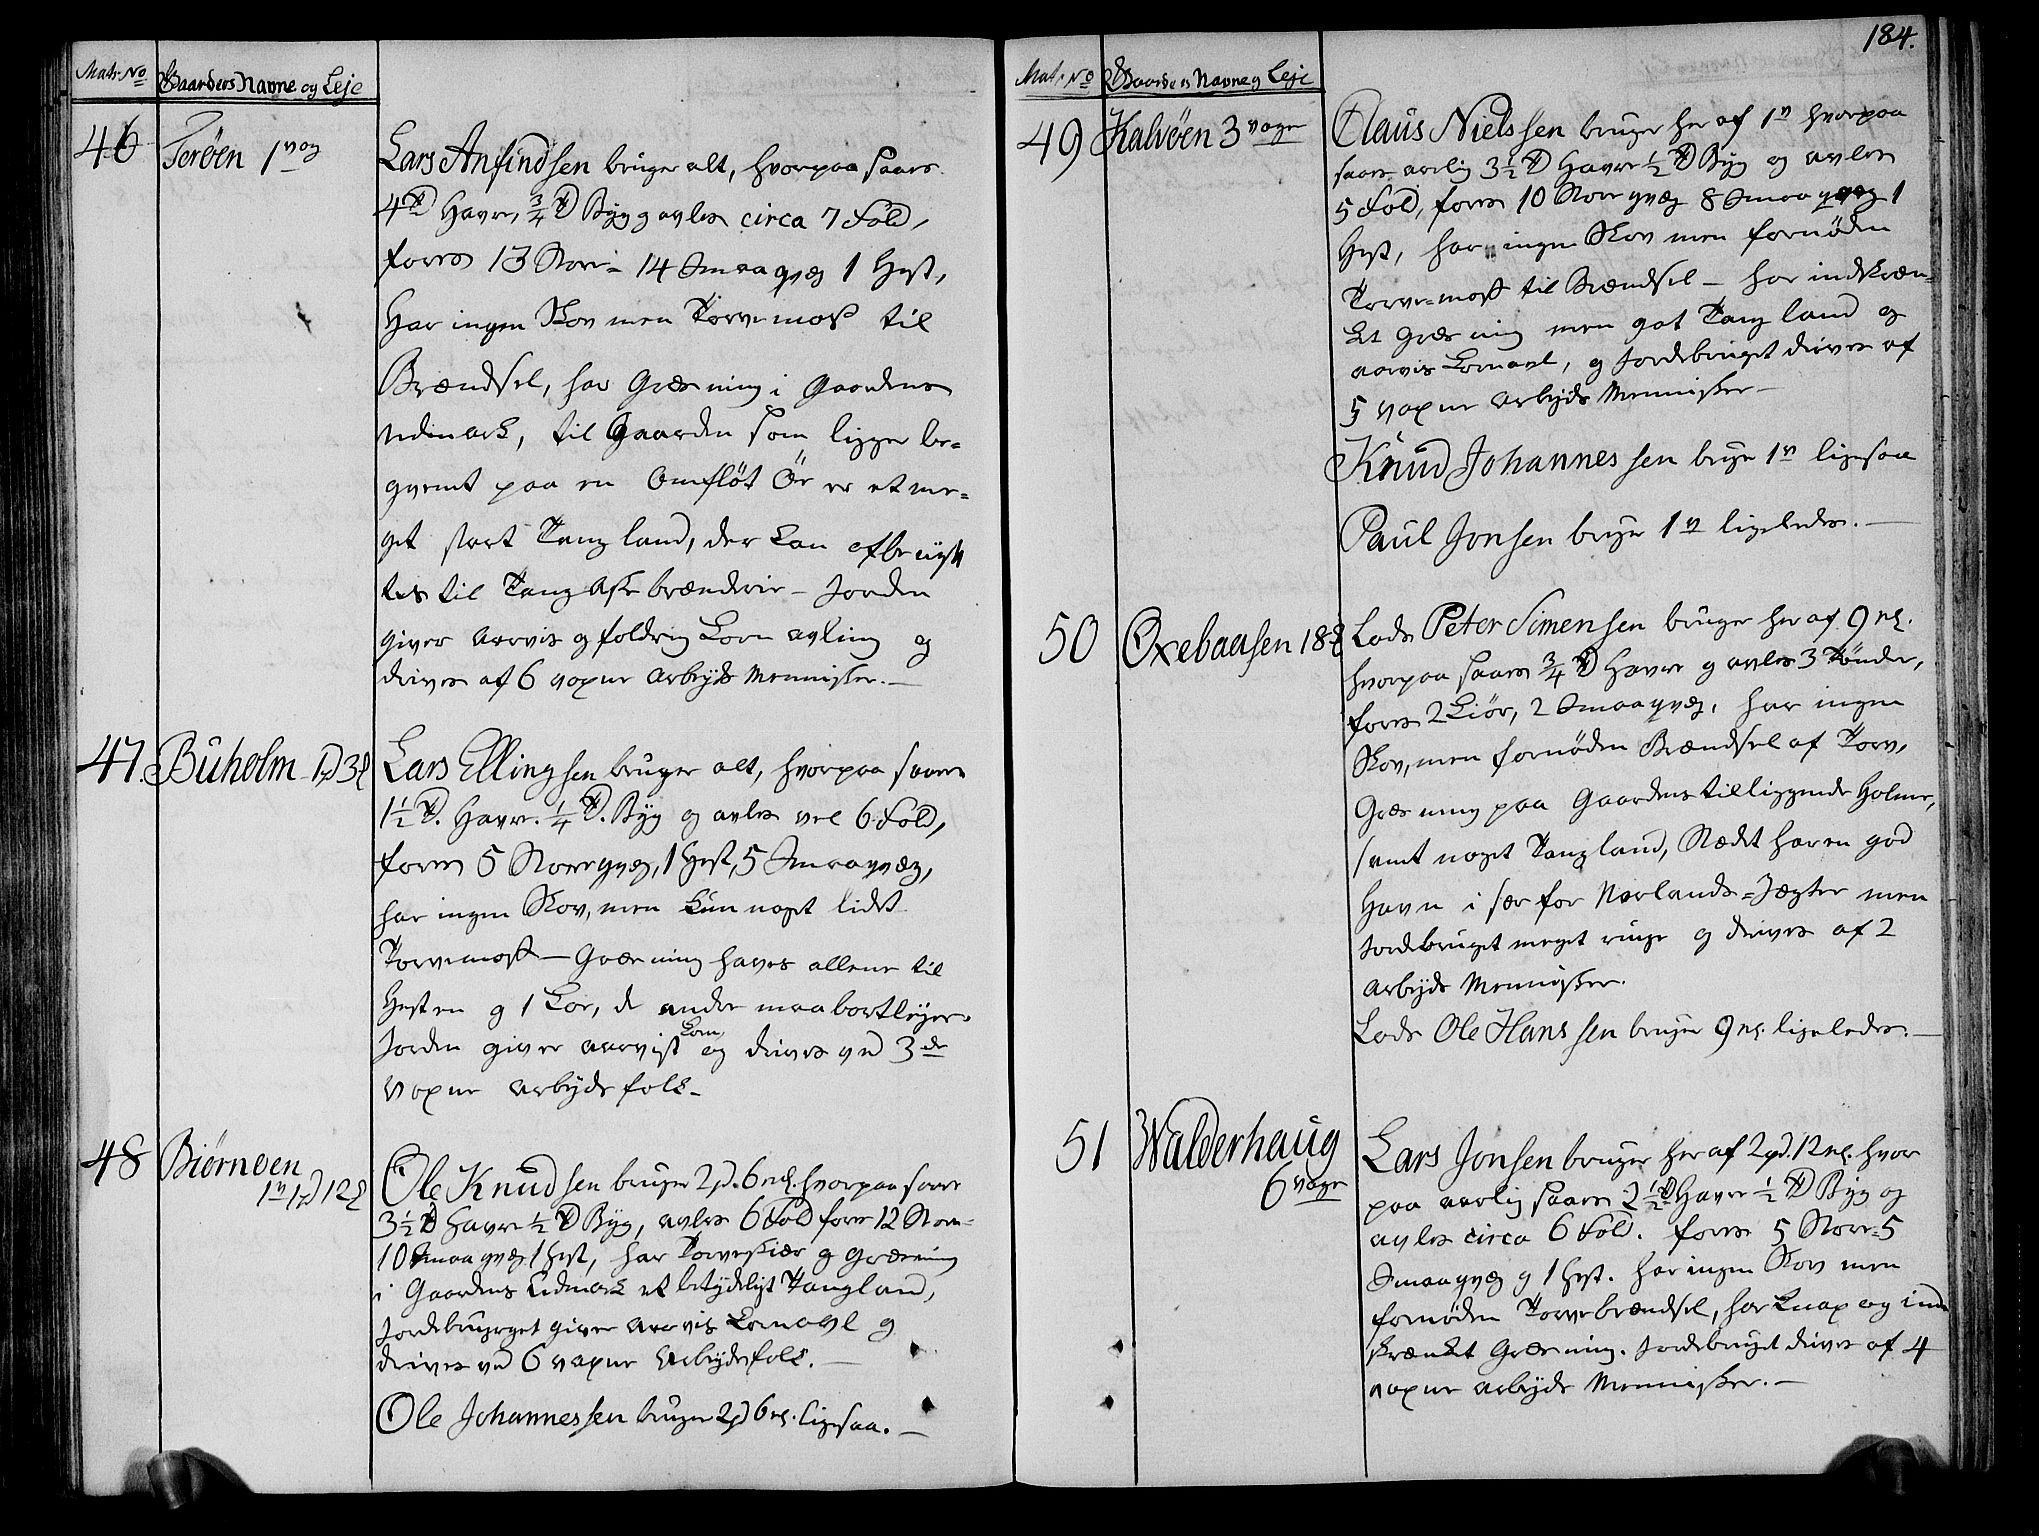 Matr: No Gaardens Navne og Leje
46 Terøen 1 vog
Lars Anfindsen bruger alt, hvorpaa saaes
4 Td Havre, 3/4 Td Byg og avles circa 7 Fold,
fores 13 Stor- 14 Smaaqvæg 1 Hest,
Har ingen Skov men Torvemoss til
Brændsel, har Græsning i Gaardens
Udmark, til Gaarden som ligger be-
qvemt paa en Omfløt Öe er et me-
get stort Tangland, der kan afbenyt
tes til Tang Aske brænderie - Jorden
giver aarvis og foldrig Korn avling og
drives af 6 voxne Arbejds Mennisker. -
47. Buholm 1 pd 3 ℔
Lars Ellingsen bruger alt, hvorpaa saaes
1 1/2 Td. Havre. 1/4 Td. Byg og avles vel 6 Fold,
fores 5 Storqvæg, 1 Hest, 5 Smaaqvæg,
har ingen Skov, men kun noget lidet
Torvemoss - Græsning haves allene til
Hesten og 1 Koe, de andre maa bortlejes.
Jorden giver aarvist Korn og drives ved 3de
voxne Arbejds folk -
48 Biørnøen
1 v 1 pd 12 ℔
Ole Knudsen bruger 2 pd. 6 mk. hvorpaa saaes
3 1/2 Td Havre 1/2 Td Byg, avles 6 Fold fores 12 Stor-
10 Smaaqvæg 1 Hest, har Torveskiær og Græsning
i Gaardens Udmark et betydeligt Tangland,
Jordebruget giver Aarvis Kornavl og
drives ved 6 voxne Arbejdsfolk. -
Ole Johannessen bruger 2 pd 6 mk. ligesaa. -
184.
Matr: No Gaardens Navne og Leje
49 Kalvøen 3 voger
Claus Nielssen bruger her af 1 v hvorpaa
saaes aarlig 3 1/2 Td Havre 1/2 Td Byg og avles
5 Fold, fores 10 Storqvæg 8 Smaaqvæg 1
Hest, har ingen Skov men fornøden
Torve-moss til Brændsel - har indskræn-
ket Græsning men got Tangland og
aarvis Kornavl, og Jordebruget drives af
5 voxne Arbejds Mennisker -
Knud Johannessen bruger 1 v ligesaa
Paul Jonsen bruger 1 v ligeledes. -
50 Oxebaasen 18 ℔
Lods Peter Simensen bruger her af 9 mk.
hvorpaa saaes 3/4 Td Havre og avles 3 Tønder,
fores 2 Kiør, 2 Smaaqvæg, har ingen
Skov, men fornøden Brændsel af Torv,
Græsning paa Gaardens tilliggende Holme,
samt noget Tangland, Stædet har en god
Havn i sær for Norlands-Jægter men
Jordebruget meget ringe og drives af 2
Arbejds Mennisker.
Lods Ole Hanssen bruger 9 mk. ligeledes. -
51 Walderhaug
6 voger
Lars Jonsen bruger her af 2 pd. 12 mk. hvor
paa aarlig saaes 2 1/2 Td Havre 1/2 Td Byg og
avles circa 6 Fold. fores 5 Stor- 5
Smaaqvæg og 1 Hest. har ingen Skov men
fornøden Torvebrændsel, har knap og ind
skrænket Græsning. Jordebruget drives af 4
voxne Arbejds Mennisker. -